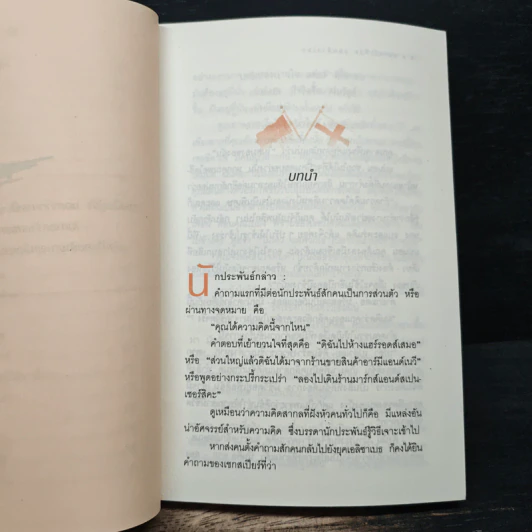 บทนำ
นักประพันธ์กล่าว :
คำถามแรกที่มีต่อนักประพันธ์สักคนเป็นการส่วนตัว หรือ
ผ่านทางจดหมาย คือ
“คุณได้ความคิดนี้จากไหน”
คำตอบที่เย้ายวนใจที่สุดคือ “ดิฉันไปห้างแฮร์รอดส์เสมอ”
หรือ “ส่วนใหญ่แล้วดิฉันได้มาจากร้านขายสินค้าอาร์มีแอนด์เนวี”
หรือพูดอย่างกระปรี้กระเปร่า “ลองไปเดินร้านมาร์กส์แอนด์สเปน-
เซอร์สิคะ”
ดูเหมือนว่าความคิดสากลที่ฝังหัวคนทั่วไปก็คือ มีแหล่งอัน
น่าอัศจรรย์สำหรับความคิด ซึ่งบรรดานักประพันธ์รู้วิธีเจาะเข้าไป
หากส่งคนตั้งคำถามสักคนกลับไปยังยุคเอลิซาเบธ ก็คงได้ยิน
คำถามของเชกสเปียร์ที่ว่า